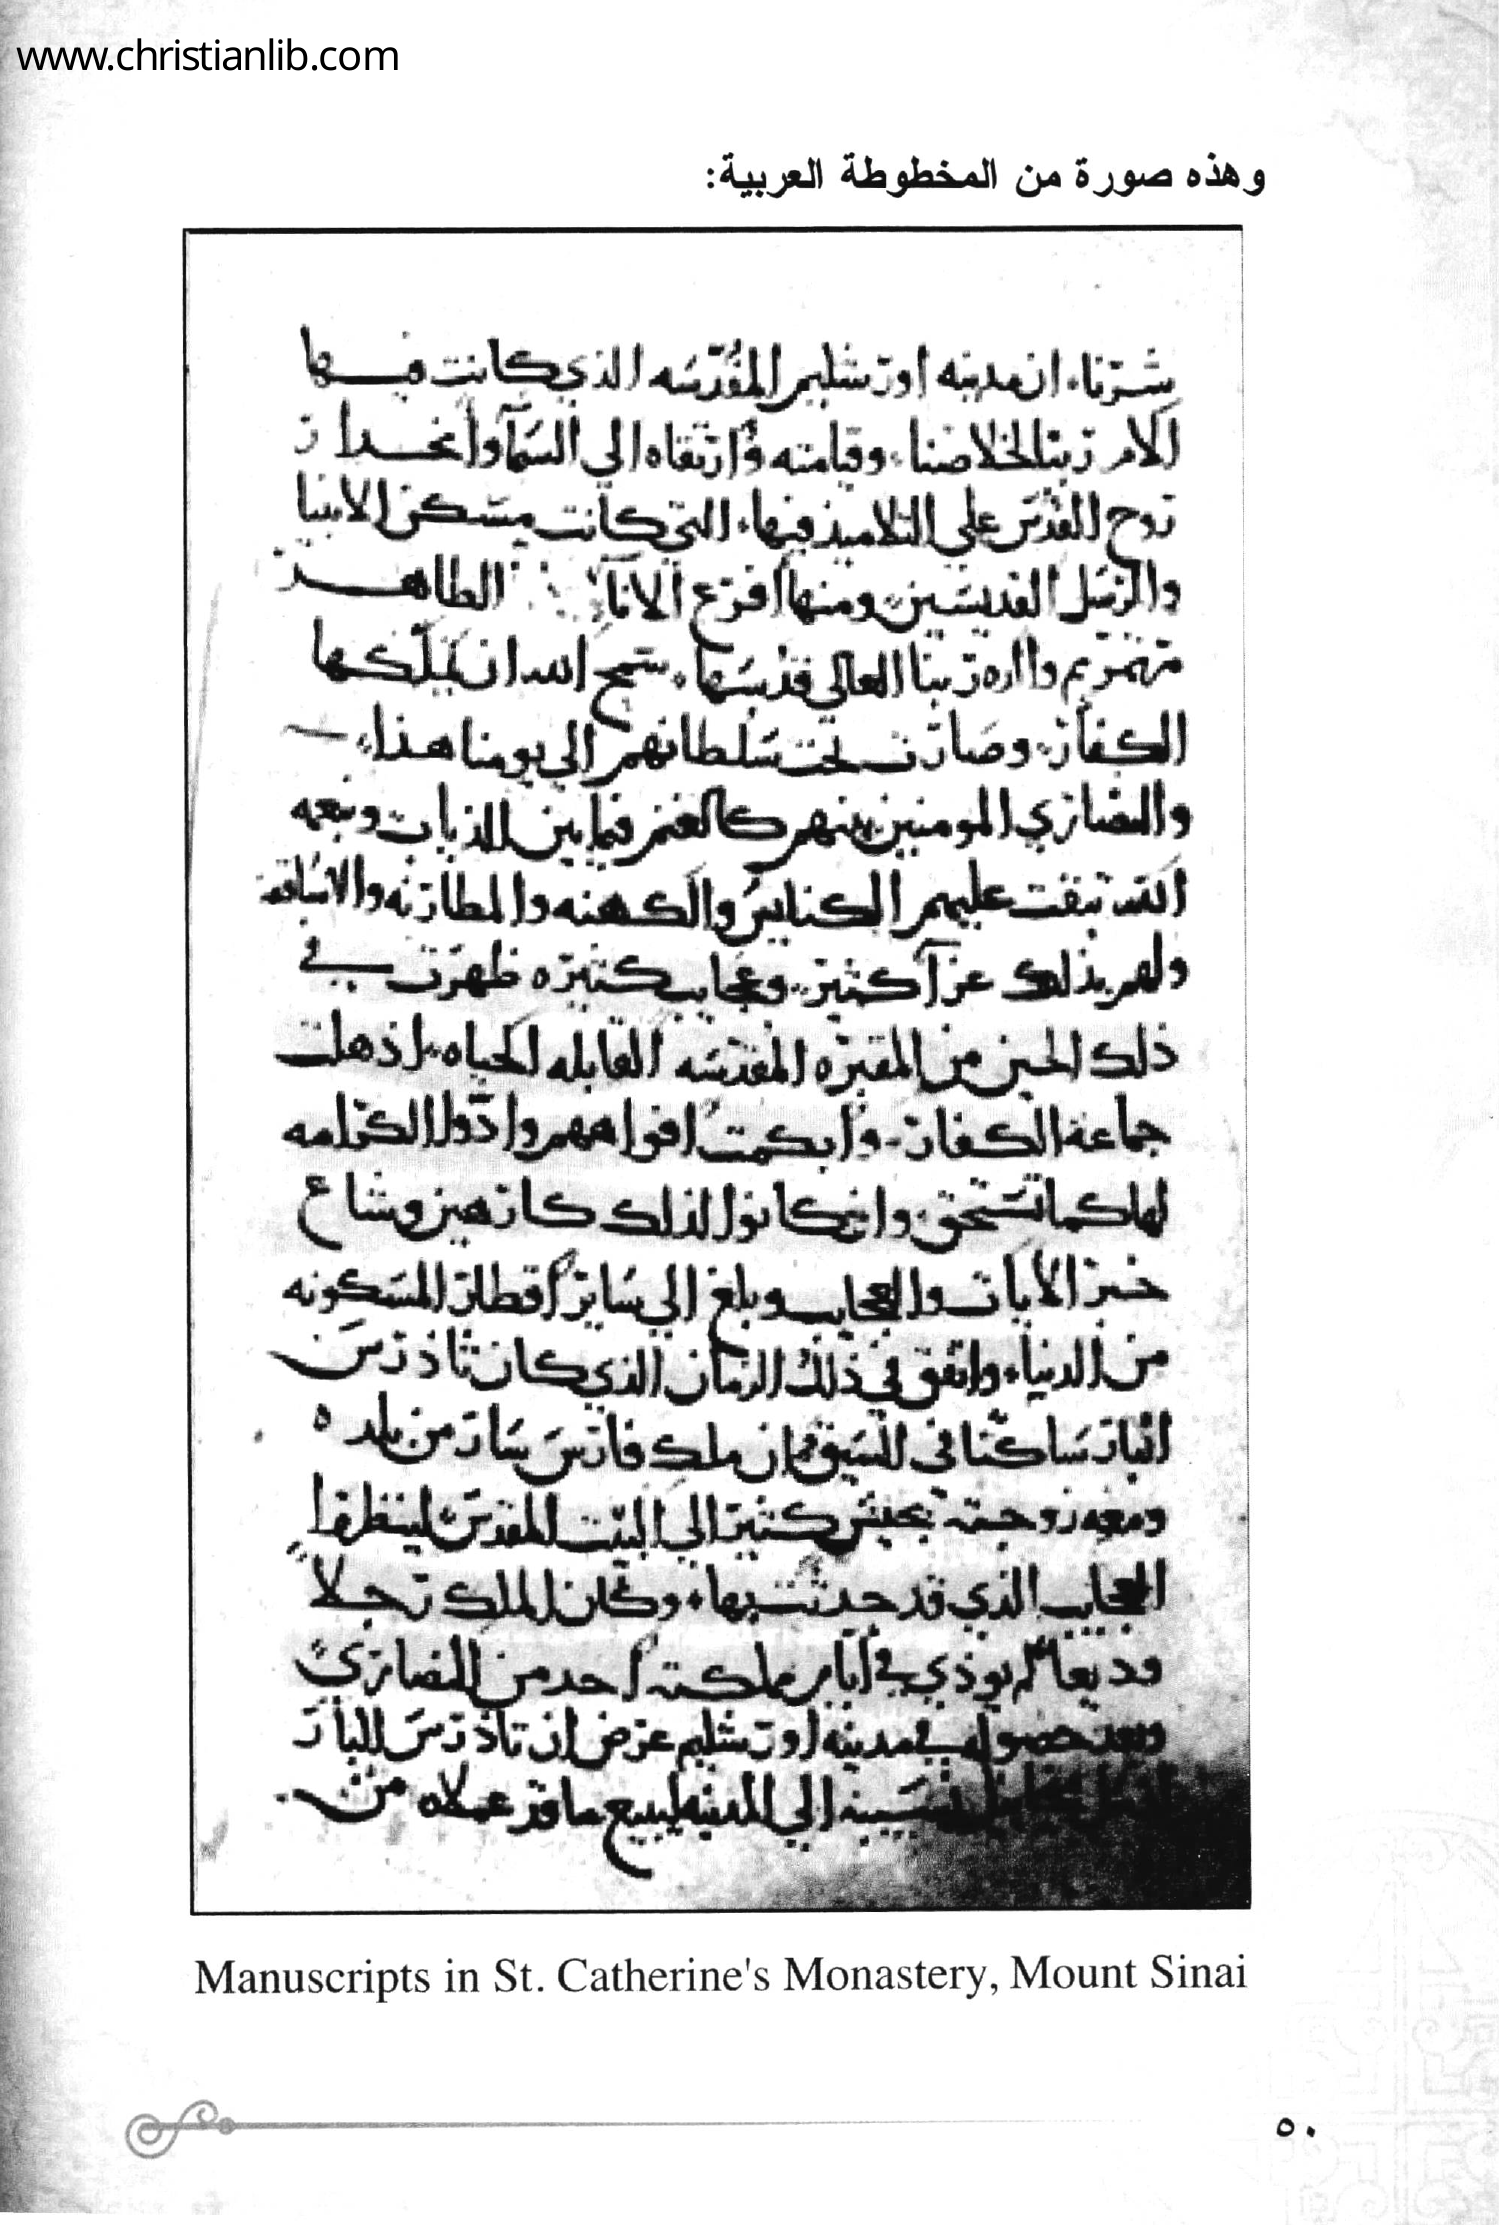 www.christianlib.com
وهذه صورة من المخطوطة العربية:
ان مدينه اورشليم المقدسه الذي كانت فيها
الام ربنا لخلاصنا. وقيامته وارتقاه الي السماوانحدار
روح القدس علي التلاميذ فيها. التي كانت مسكن الانبيا
والرسل القديسين. ومنها افرع الانا الطاهر
العالي قدسها. سمح الله ان يملكها
الكفار. وصارت تحت سلطانهم الي يومنا هذا.
والنصاري المومنين بينهم كالغنم فيما بين الذياب ونعمه
الله تبقت عليهم الكنايس والكهنه والمطارنه والاساقفه
ولهم بذلك عزا كثير. وعجايب كثيره ظهرت في
ذلك الحين من المقبره المقدسه القابله الحياه. اذهلت
جماعة الكفار. وابكمت افواههم وادوا الكرامه
لها كما تستحق. وان كانوا لذلك كارهين وشاع
خبر الايات والعجايب وبلغ الي ساير اقطار المسكونه
من الدنيا. واتفق في ذلك الزمان الذي كان تاذرس
انبار ساكنا في السيق ان ملك فارس سار من بلده
ومعه زوجته بجيش كثير الي البيت المقدس لينظروا
العجايب الذي قد حدثت بها. وكان الملك رجلا
وديعا لم يوذي في ايام مملكته احد من النصاري
وبعد حصوله في مدينه اورشليم عرض ان تاذرس البار
الي المدينه ليبيع ما قد عملاه من
Manuscripts in St. Catherine's Monastery, Mount Sinai
٥٠